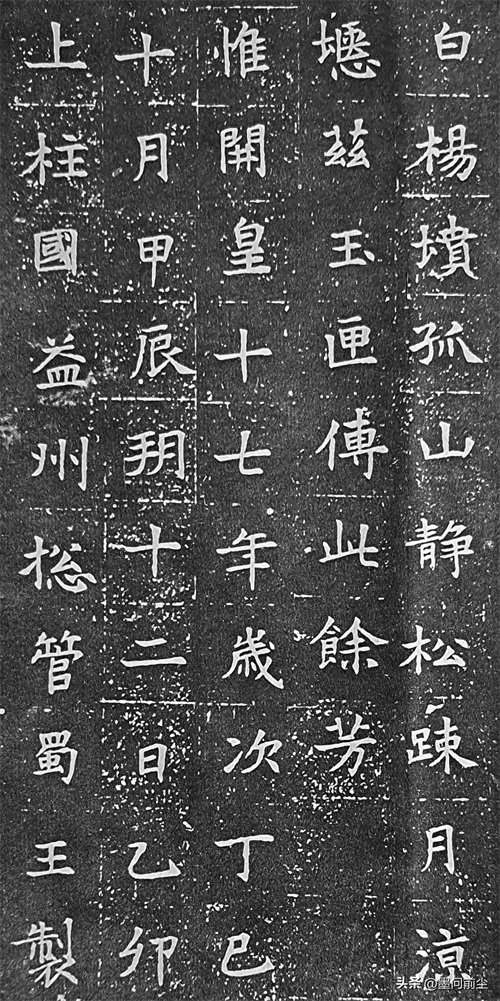 白楊墳孤山静松踈月涼
瘞兹玉匣傳此餘芳
惟開皇十七年歲次丁巳
十月甲辰朔十二日乙卯
上柱國益州捴管蜀王製
头条@墨何前尘